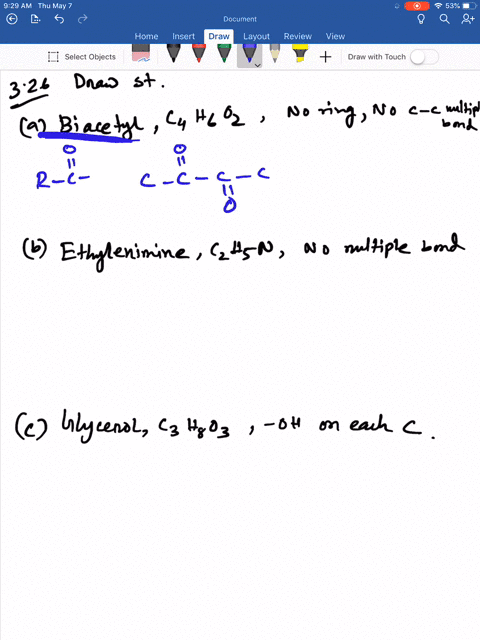 9:29 AM Thu May 7
53%
Document
Home Insert Draw Layout Review View
Select Objects
Draw with Touch
3.26 Draw st.
(a) Biacetyl, C4 H6 O2, No ring, No C-C multiple bond
O O
R-C- C-C-C-C
O
(b) Ethylenimine, C2H5N, No multiple bond
(c) Glycerol, C3 H8 O3, -OH on each C.